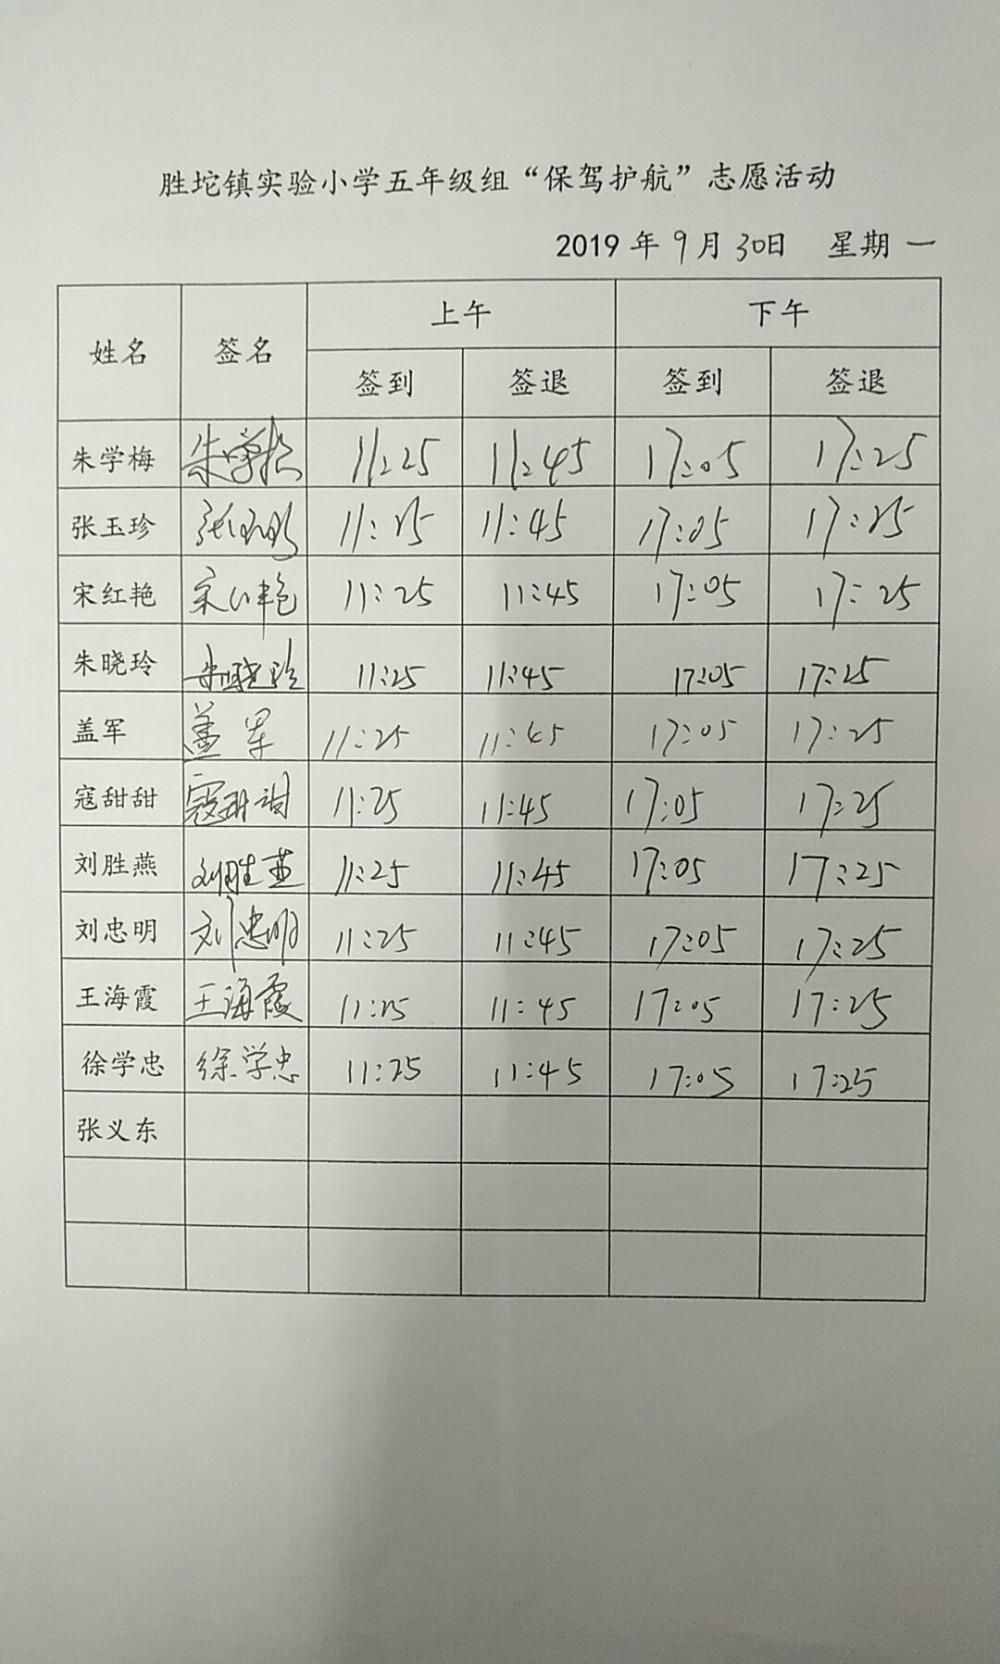 胜坨镇实验小学五年级组“保驾护航”志愿活动
2019 年 9 月 30日 星期 一
姓名 签名 上午 下午
签到 签退 签到 签退
朱学梅 朱学梅 11:25 11:45 17:05 17:25
张玉珍 张玉珍 11:25 11:45 17:05 17:25
宋红艳 宋红艳 11:25 11:45 17:05 17:25
朱晓玲 朱晓玲 11:25 11:45 17:05 17:25
盖军 盖军 11:25 11:45 17:05 17:25
寇甜甜 寇甜甜 11:25 11:45 17:05 17:25
刘胜燕 刘胜燕 11:25 11:45 17:05 17:25
刘忠明 刘忠明 11:25 11:45 17:05 17:25
王海霞 王海霞 11:25 11:45 17:05 17:25
徐学忠 徐学忠 11:25 11:45 17:05 17:25
张义东